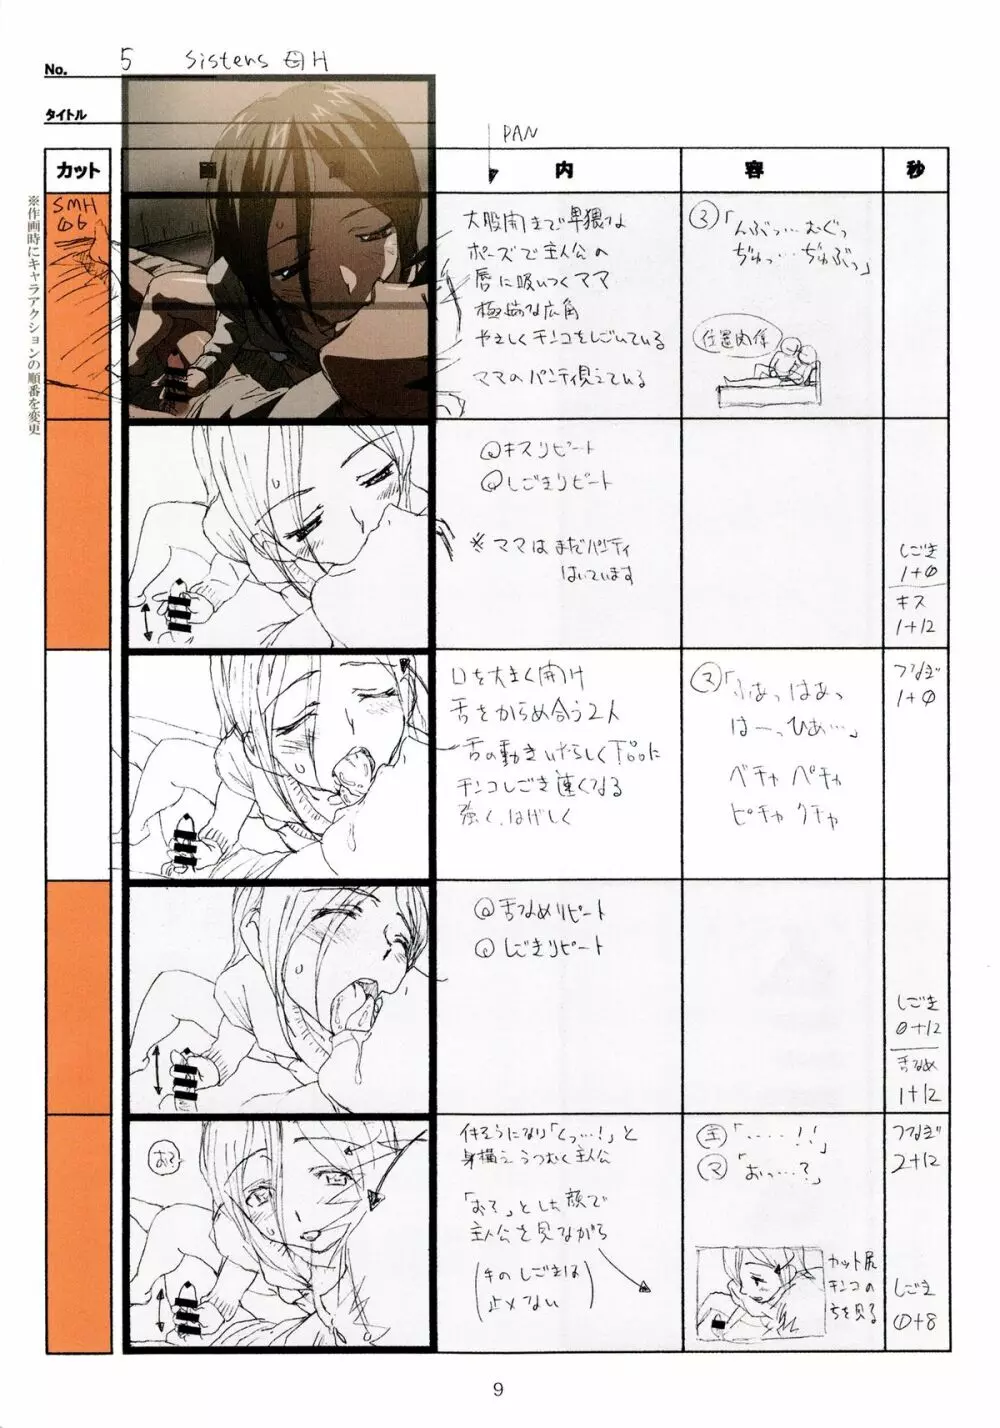 No. 5 Sisters 母H
タイトル
PAN
カット 画 面 内 容 秒
※作画時にキャラアクションの順番を変更
SMH
06
大股開きで卑猥な
ポーズで主人公の
唇に吸いつくママ
極端な広角
やさしくチンコをしごいている
ママのパンティ見えている
マ「んぶっ…むぐっ
ぢゅっ…ぢゅぶっ」
位置関係
キスリピート
しごきリピート
※ママはまだパンティ
はいています
しごき
1+0
キス
1+12
口を大きく開け
舌をからめ合う2人
舌の動きいやらしく
チンコしごき速くなる
強く、はげしく
マ「ふあっはあっ
はーっひあ…」
ベチャ ペチャ
ピチャ クチャ
つなぎ
1+0
舌なめリピート
しごきリピート
しごき
0+12
舌なめ
1+12
あら
イキそうになり「くっ…!」と
身構え、うつむく主人公
「あら」とした顔で
主人公を見ながら
(手のしごきは
止メない)
主「‥‥!!」
マ「あっ…?」
カット尻
チンコの
方を見る
つなぎ
2+12
しごき
0+8
9